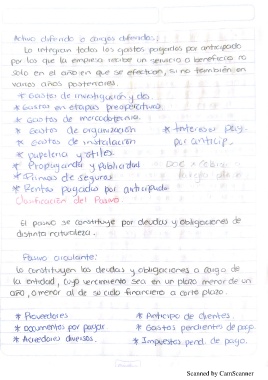 Activo diferido o cargos diferidos:
Lo integran todos los gastos pagados por anticipado
por los que la empresa recibe un servicio o beneficio no
solo en el año en que se efectuan, si no también en
varios años posteriores.
* Gastos de investigación y des.
* Gastos en etapas preoperativas
* Gastos de mercadotecnia.
* Gastos de organización * Intereses pag.
* Gastos de instalación por anticip.
* papeleria y utiles
* Propaganda y Publicidad
* Primas de seguros
* Rentas pagadas por anticipado
Clasificación del Pasivo.
El pasivo se constituye por deudas y obligaciones de
distinta naturaleza.
Pasivo circulante:
Lo constituyen las deudas y obligaciones a cargo de
la entidad, cuyo vencimiento sea en un plazo menor de un
año, o menor al de su ciclo financiero a corto plazo.
* Proveedores * Anticipo de clientes.
* Documentos por pagar * Gastos pendientes de pago.
* Acreedores diversos. * Impuestos pend. de pago.
Scanned by CamScanner